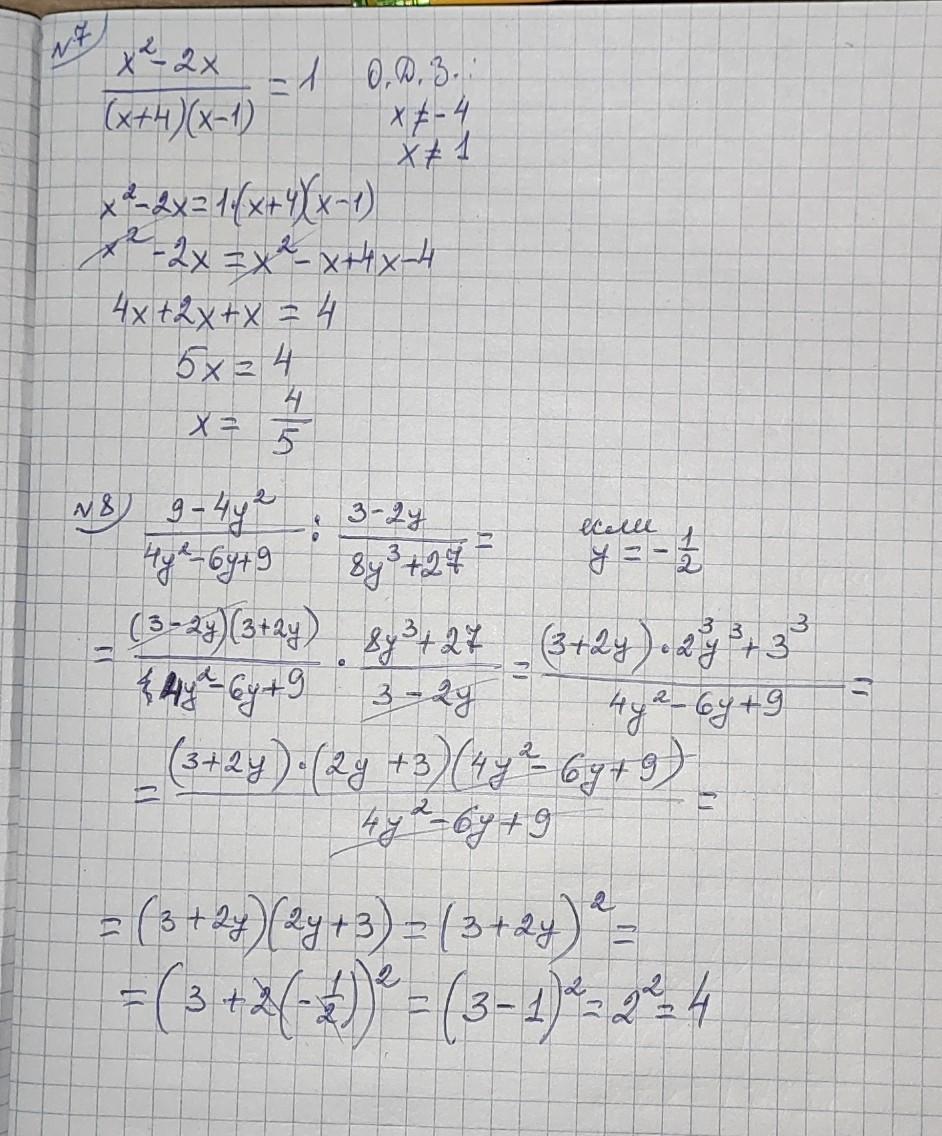 №7
(x² - 2x)/((x+4)(x-1)) = 1 О.Д.З.:
x ≠ -4
x ≠ 1
x² - 2x = 1·(x+4)(x-1)
x² - 2x = x² - x + 4x - 4
4x + 2x + x = 4
5x = 4
x = 4/5
№8) (9 - 4y²)/(4y² - 6y + 9) : (3 - 2y)/(8y³ + 27) = если y = -1/2
= ((3 - 2y)(3 + 2y))/(4y² - 6y + 9) · (8y³ + 27)/(3 - 2y) = ((3 + 2y)·2³y³ + 3³)/(4y² - 6y + 9) =
= ((3 + 2y)·(2y + 3)(4y² - 6y + 9))/(4y² - 6y + 9) =
= (3 + 2y)(2y + 3) = (3 + 2y)² =
= (3 + 2(-1/2))² = (3 - 1)² = 2² = 4